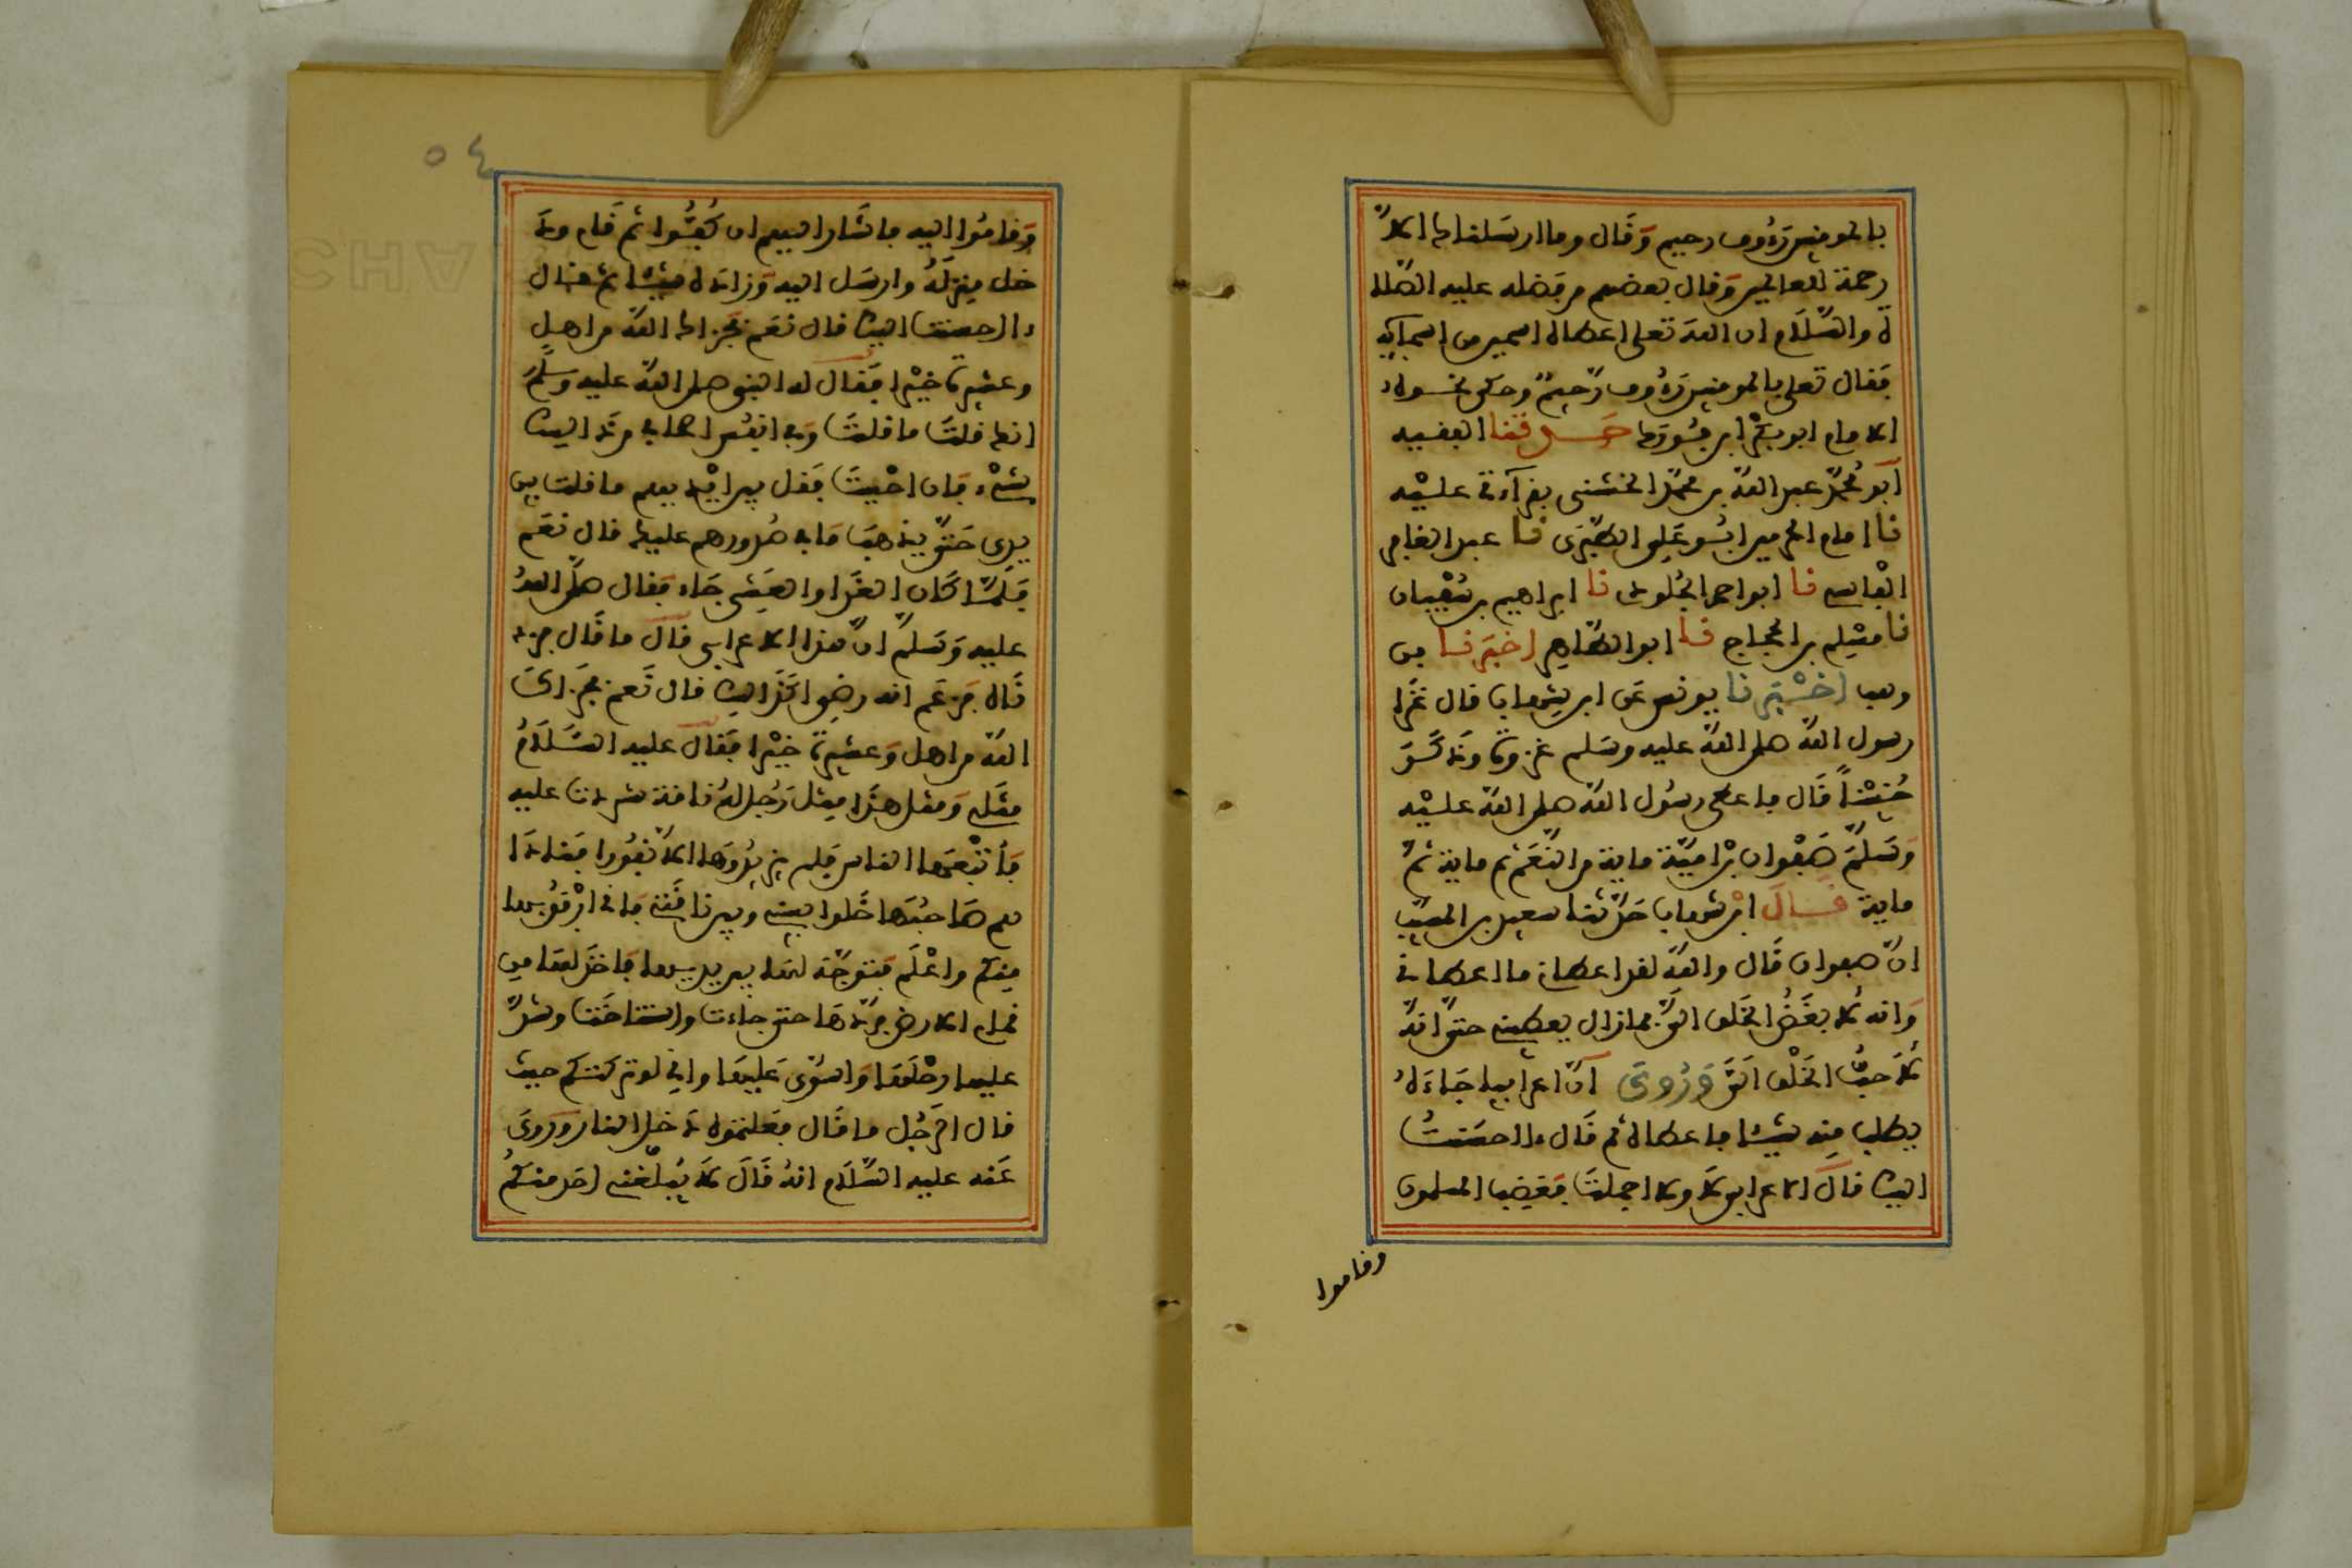 بالمومنين رءوف رحيم وقال وما ارسلناك الا
رحمة للعالمين وقال بعضهم من فضله عليه الصلا
ة والسلام ان الله تعلى اعطاه اسمين من اسمايه
فقال تعلى بالمومنين رءوف رحيم وحكى نحوه
الامام ابو بكر ابن فورك حدثنا الفقيه
ابو محمد عبد الله بن محمد الخشني بقراءتي عليه
نا امام الحرمين ابو علي الطبري نا عبد الغافر
الفاسي نا ابو احمد الجلودي نا ابراهيم بن سفيان
نا مسلم بن الحجاج نا ابو الطاهر اخبرنا بن
وهب اخبرنا يونس عن ابن شهاب قال غزا
رسول الله صلى الله عليه وسلم غزوة وذكر
حنينا قال فاعطى رسول الله صلى الله عليه
وسلم صفوان بن امية ماية من النعم ثم ماية ثم
ماية قال ابن شهاب حدثنا سعيد بن المسيب
ان صفوان قال والله لقد اعطاني ما اعطاني
وانه لابغض الخلق الي فما زال يعطيني حتى انه
لاحب الخلق الي وروي ان اعرابيا جاءه
يطلب منه شيئا فاعطاه ثم قال ءاحسنت
اليك قال الاعرابي لا ولا اجملت فغضب المسلمون
وقاموا
٥٤
وقاموا اليه فاشار اليهم ان كفوا ثم قام ود
خل منزله وارسل اليه وزاده شيئا ثم قال
ءاحسنت اليك قال نعم فجزاك الله من اهل
وعشيرة خيرا فقال له النبي صلى الله عليه وسلم
انك قلت ما قلت وفي انفس اصحابي من ذلك
شيء فان احببت فقل بين ايديهم ما قلت بين
يدي حتى يذهب ما في صدورهم عليك قال نعم
فلما كان الغد او العشي جاء فقال صلى الله
عليه وسلم ان هذا الاعرابي قال ما قال فزد
ناه فزعم انه رضي اكذلك قال نعم فجزاك
الله من اهل وعشيرة خيرا فقال عليه السلام
مثلي ومثل هذا مثل رجل له ناقة شردت عليه
فاتبعها الناس فلم يزيدوها الا نفورا فنادا
هم صاحبها خلوا بيني وبين ناقتي فاني ارفق بها
منكم واعلم فتوجه لها بين يديها فاخذ لها من
قمام الارض فردها حتى جاءت واستناخت وشد
عليها رحلها واستوى عليها واني لو تركتكم حيث
قال الرجل ما قال فقتلتموه دخل النار وروي
عنه عليه السلام انه قال لا يبلغني احد منكم